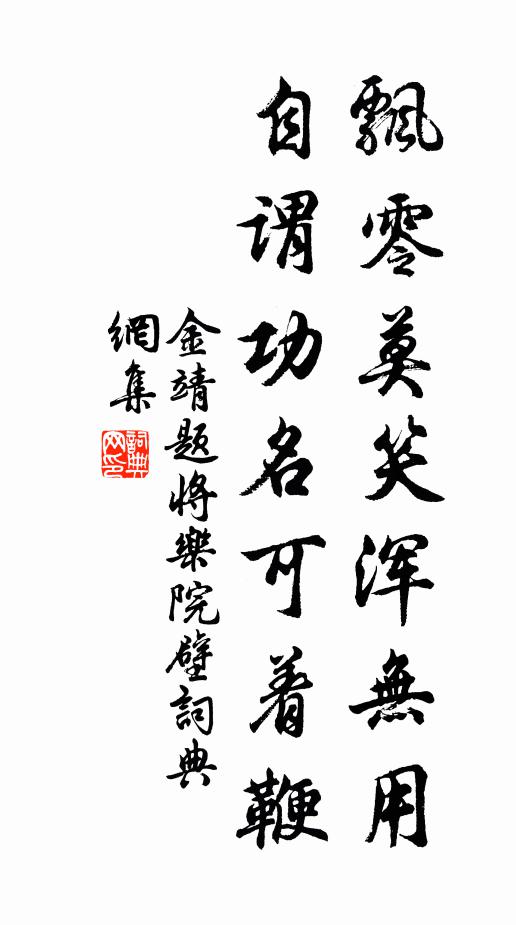 飄零莫笑渾無用
自谓功名可着鞭
金靖题將樂院壁詞典
網集
詞典
网印